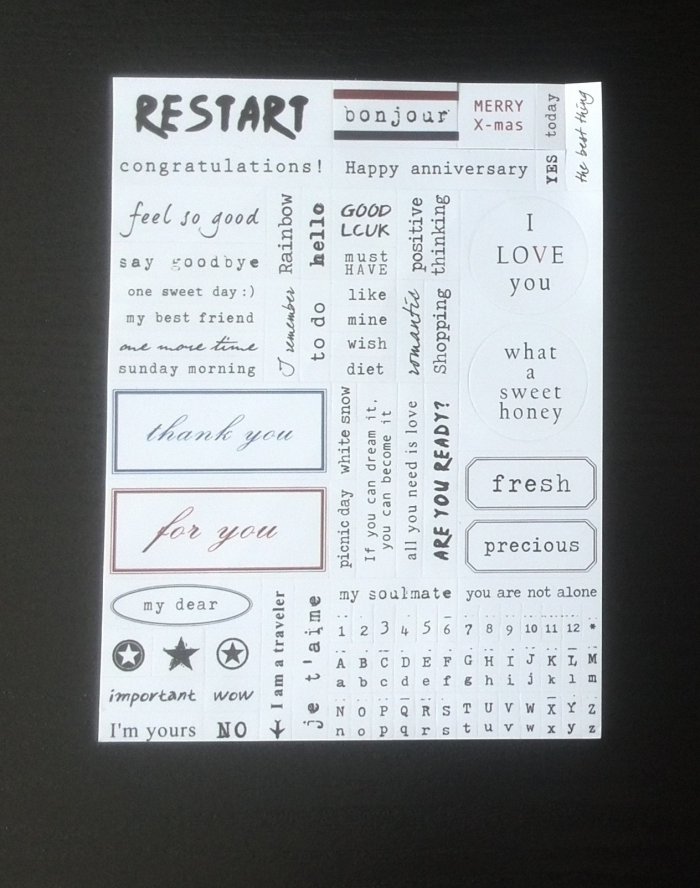 RESTART
bonjour
MERRY
X-mas
today
YES
the best thing
congratulations!
Happy anniversary
feel so good
say goodbye
one sweet day:)
my best friend
one more time
sunday morning
Rainbow
I remember
hello
to do
GOOD
LCUK
must
HAVE
like
mine
wish
diet
positive
thinking
romantic
Shopping
I
LOVE
you
what
a
sweet
honey
thank you
for you
white snow
picnic day
If you can dream it,
you can become it
all you need is love
ARE YOU READY?
fresh
precious
my dear
important
wow
I'm yours
NO
I am a traveler
je t'aime
my soulmate
you are not alone
1 2 3 4 5 6 7 8 9 10 11 12 *
A B C D E F G H I J K L M
a b c d e f g h i j k l m
N O P Q R S T U V W X Y Z
n o p q r s t u v w x y z